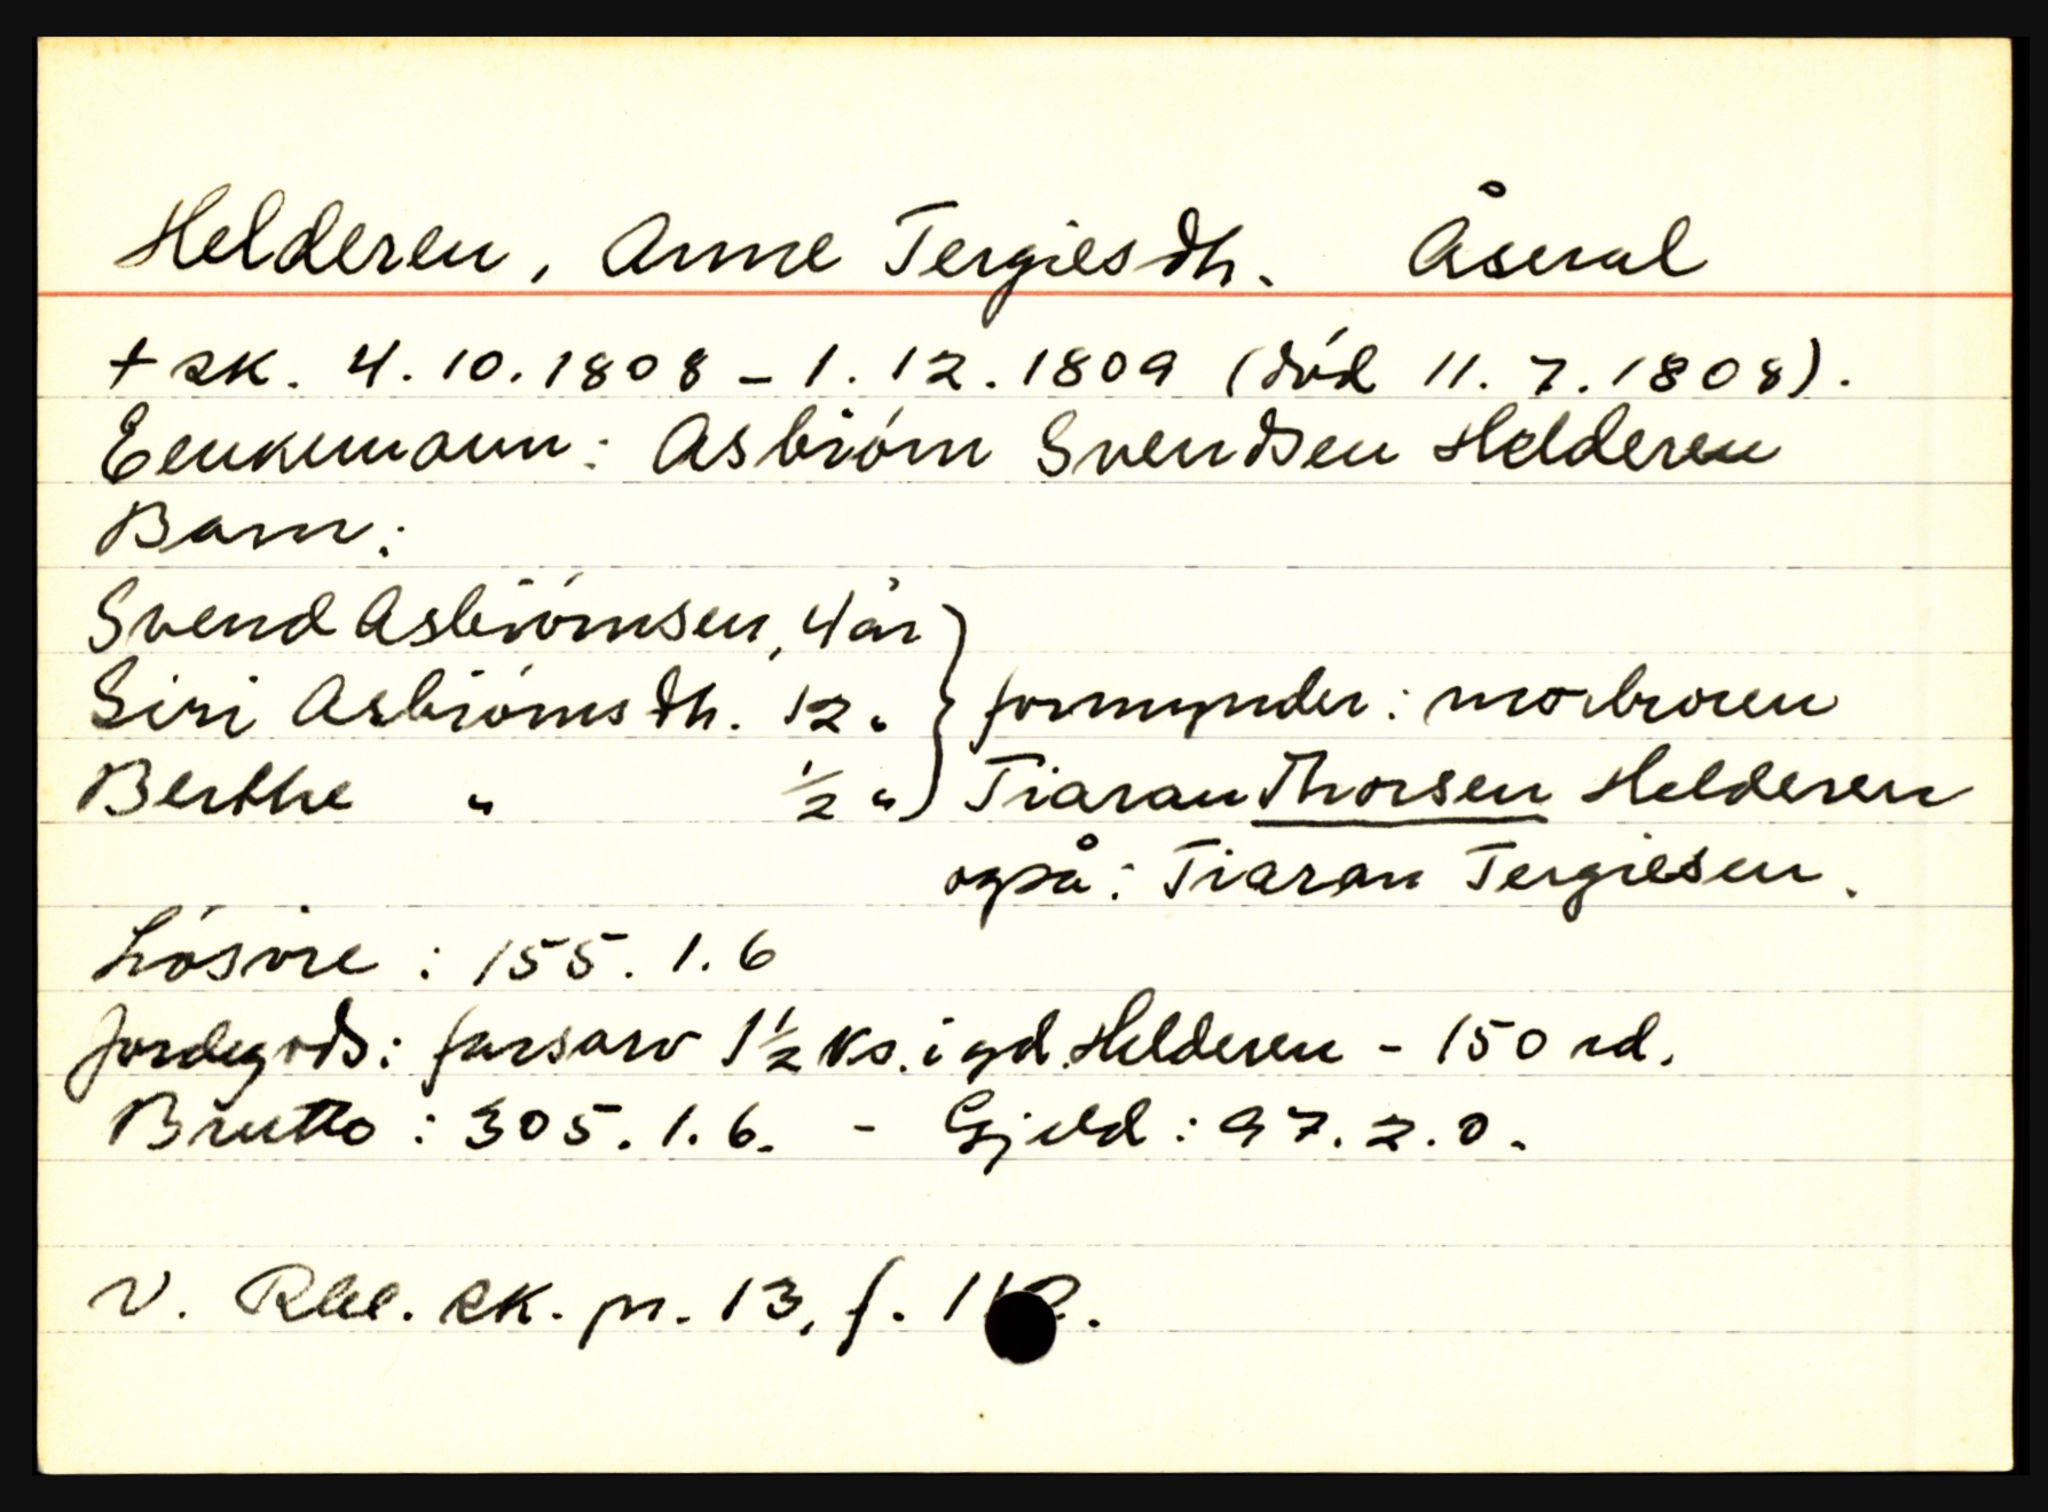 Helderen, Anne Tergiesdtr. Åseral
+ sk. 4.10.1808 - 1.12.1809 (död 11.7.1808).
Eenkemann: Asbiörn Svendsen Helderen
Barn:
Svend Asbiörnsen, 4 år
Siri Asbiörnsdtr. 12 " } formynder: morbroren
Berthe " 1/2 " Tiaran Thorsen Helderen
også: Tiaran Tergiesen.
Lösöre: 155.1.6
Jordegods: farsarv 1 1/2 ks. i gd. Helderen - 150 rd.
Brutto: 305.1.6. - Gjeld: 97.2.0.
V. Rbl. sk. pr. 13, f.